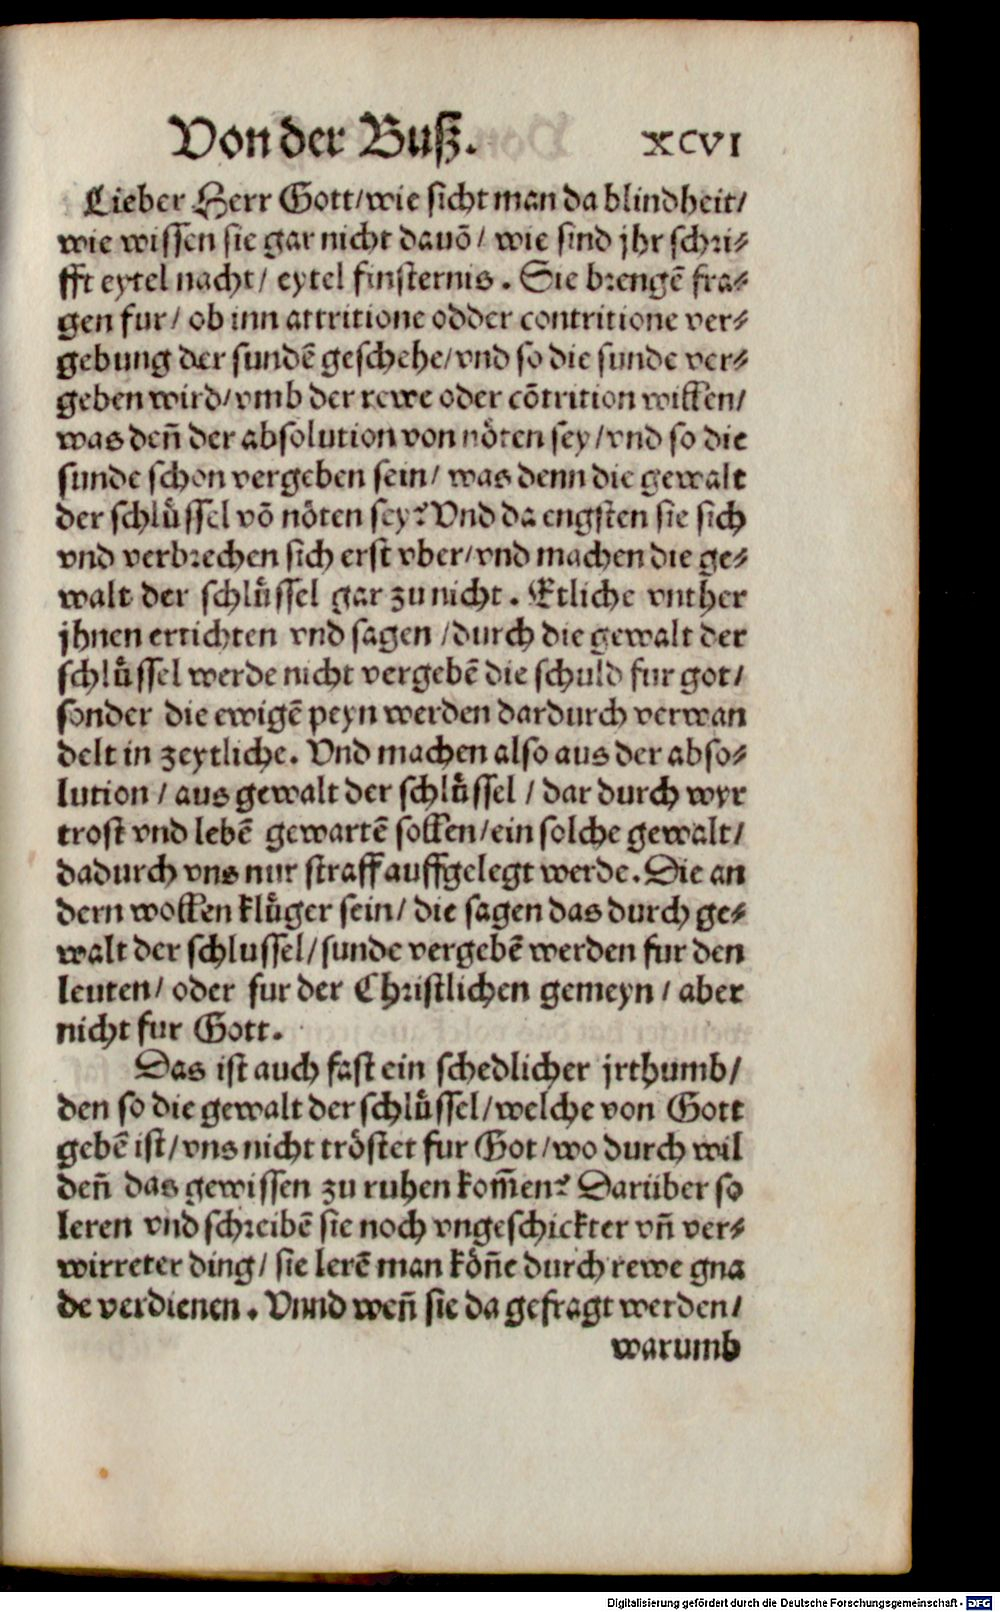 Von der Buß. XCVI
Lieber Herr Gott/wie sicht man da blindheit/
wie wissen sie gar nicht dauõ/ wie sind jhr schri⸗
fft eytel nacht/ eytel finsternis. Sie brengẽ fra⸗
gen fur/ ob inn attritione odder contritione ver⸗
gebung der sundẽ geschehe/vnd so die sunde ver⸗
geben wird/vmb der rewe oder cõtrition willen/
was deñ der absolution von nöten sey/vnd so die
sunde schon vergeben sein/ was denn die gewalt
der schlůssel võ nöten sey? Vnd da engsten sie sich
vnd verbrechen sich erst vber/vnd machen die ge⸗
walt der schlůssel gar zu nicht. Etliche vnther
jhnen errichten vnd sagen /durch die gewalt der
schlůssel werde nicht vergebẽ die schuld fur got/
sonder die ewigẽ peyn werden dardurch verwan
delt in zeytliche. Vnd machen also aus der abso⸗
lution / aus gewalt der schlůssel / dar durch wyr
trost vnd lebẽ gewartẽ sollen/ein solche gewalt/
dadurch vns nur straff auffgelegt werde. Die an
dern wollen klůger sein/ die sagen das durch ge⸗
walt der schlussel/sunde vergebẽ werden fur den
leuten/ oder fur der Christlichen gemeyn / aber
nicht fur Gott.
Das ist auch fast ein schedlicher jrthumb/
den so die gewalt der schlůssel/welche von Gott
gebẽ ist/vns nicht tröstet fur Got/wo durch wil
deñ das gewissen zu ruhen kom̃en? Darüber so
leren vnd schreibẽ sie noch vngeschickter vñ ver⸗
wirreter ding/ sie lerẽ man köñe durch rewe gna
de verdienen. Vnnd weñ sie da gefragt werden/
warumb
Digitalisierung gefördert durch die Deutsche Forschungsgemeinschaft - DFG